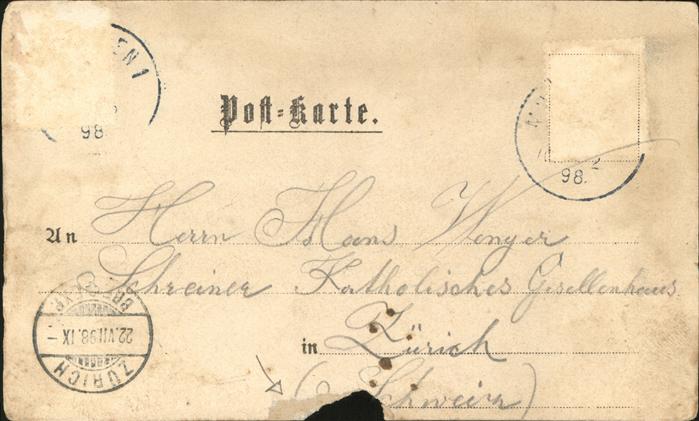 EN 1
98
98.
Post-Karte.
An Herrn Hans Wenger
Schreiner Katholisches Gesellenhaus
in Zürich
(Schweiz)
ZÜRICH
22.VII.98.IX-